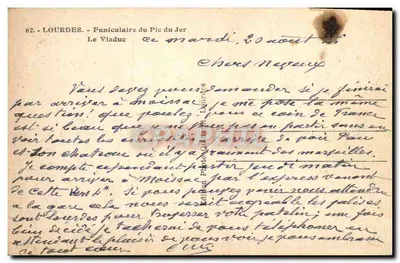 62. - LOURDES. - Funiculaire du Pic du Jer
Le Viaduc
Ce mardi, 20 août
Chers neveux
Vous devez vous demander si je finirai
par arriver à Moissac, je me pose la même
question! que voulez vous ce coin de France
est si beau que si on partir sans en
voir toutes les de voir Pau
et son château où il y a des merveilles.
Je compte cependant partir jeudi matin
pour arriver à Moissac par l'express venant
de Cette Si vous pouvez venir nous attendre
à la gare cela nous serait agréable les valises
sont lourdes pour traverser votre patelin; une fois
bien décidé je tacherai de vous téléphoner en
attendant le plaisir de vous voir je vous embrasse
de tout coeur.